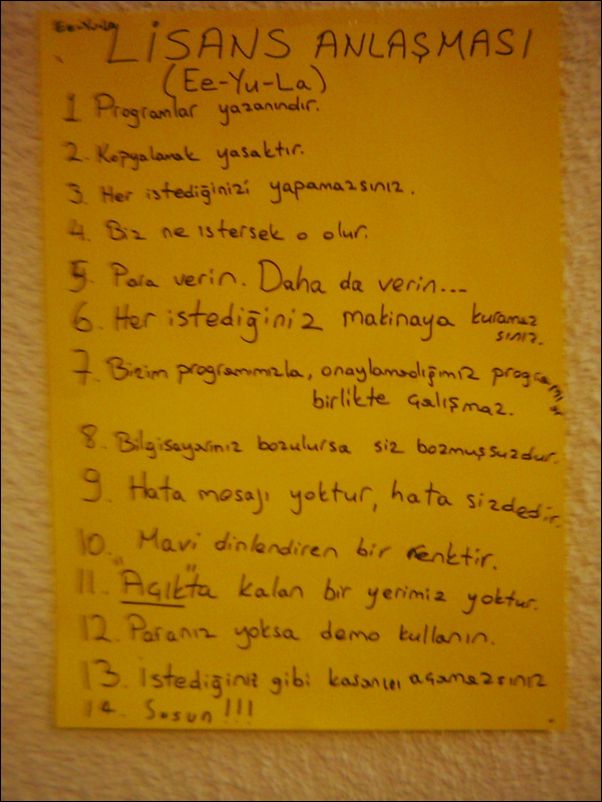 Ee-Yu-La
LİSANS ANLAŞMASI
(Ee-Yu-La)
1 Programlar yazanındır.
2. Kopyalamak yasaktır.
3. Her istediğinizi yapamazsınız.
4. Biz ne istersek o olur.
5. Para verin. Daha da verin...
6. Her istediğiniz makinaya kuramaz
sınız.
7. Bizim programımızla, onaylamadığımız program
birlikte çalışmaz.
8. Bilgisayarınız bozulursa siz bozmuşsuzdur.
9. Hata mesajı yoktur, hata sizdedir.
10. Mavi dinlendiren bir renktir.
11. "Açık"ta kalan bir yerimiz yoktur.
12. Paranız yoksa demo kullanın.
13. İstediğiniz gibi kasanızı açamazsınız
14. Susun!!!